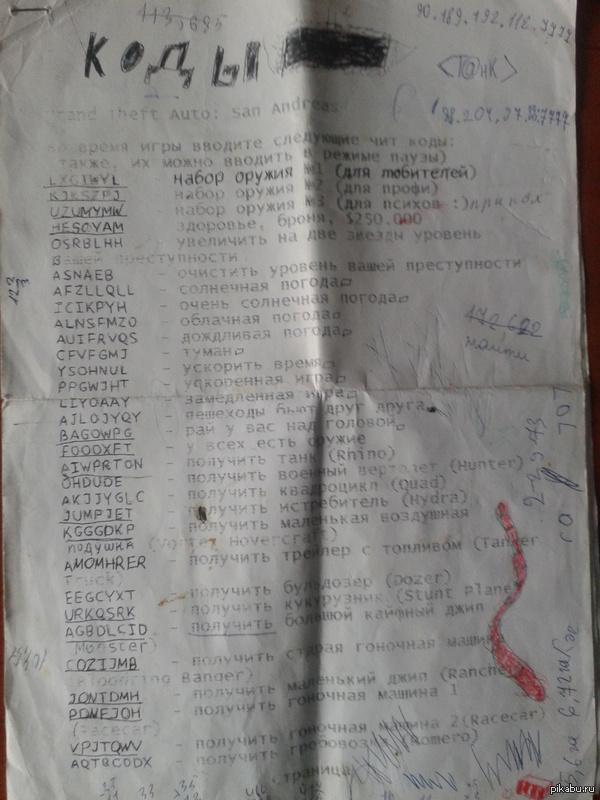 90.189.192.112.7777
КОДЫ
<Т@нК>
Grand Theft Auto: San Andreas
98.204.
Во время игры вводите следующие чит коды:
также, их можно вводить в режиме паузы)
LXGIWYL - набор оружия №1 (для любителей)
KJKSZPJ - набор оружия №2 (для профи)
UZUMYMW - набор оружия №3 (для психов :)
HESOYAM - здоровье, броня, $250.000
OSRBLHH - увеличить на две звезды уровень
Вашей преступности
ASNAEB - очистить уровень вашей преступности
AFZLLQLL - солнечная погода
ICIKPYH - очень солнечная погода
ALNSFMZO - облачная погода
AUIFRVQS - дождливая погода
CFVFGMJ - туман
найти
YSOHNUL - ускорить время
PPGWJHT - ускоренная игра
LIYOAAY - замедленная игра
AJLOJYQY - пешеходы бьют друг друга
BAGOWPG - рай у вас над головой
FOOOXFT - у всех есть оружие
AIWPRTON - получить танк (Rhino)
OHDUDE - получить военный вертолет (Hunter)
AKJJYGLC - получить квадроцикл (Quad)
JUMPJET - получить истребитель (Hydra)
KGGGDKP - получить маленькая воздушная
подушка (Vortex Hovercraft)
AMOMHRER - получить трейлер с топливом (Tanker
Truck)
EEGCYXT - получить бульдозер (Dozer)
URKQSRK - получить кукурузник (Stunt Plane)
AGBDLCID - получить большой кайфный джип
Monster)
CQZIJMB - получить старая гоночная машина
Bloodring Banger)
JQNTDMH - получить маленький джип (Rancher)
PDNEJOH - получить гоночная машина 1
(Racecar)
VPJTQWV - получить гоночная машина 2(Racecar)
AQTBCODX - получить гробовозка (Romero)
страница
pikabu.ru